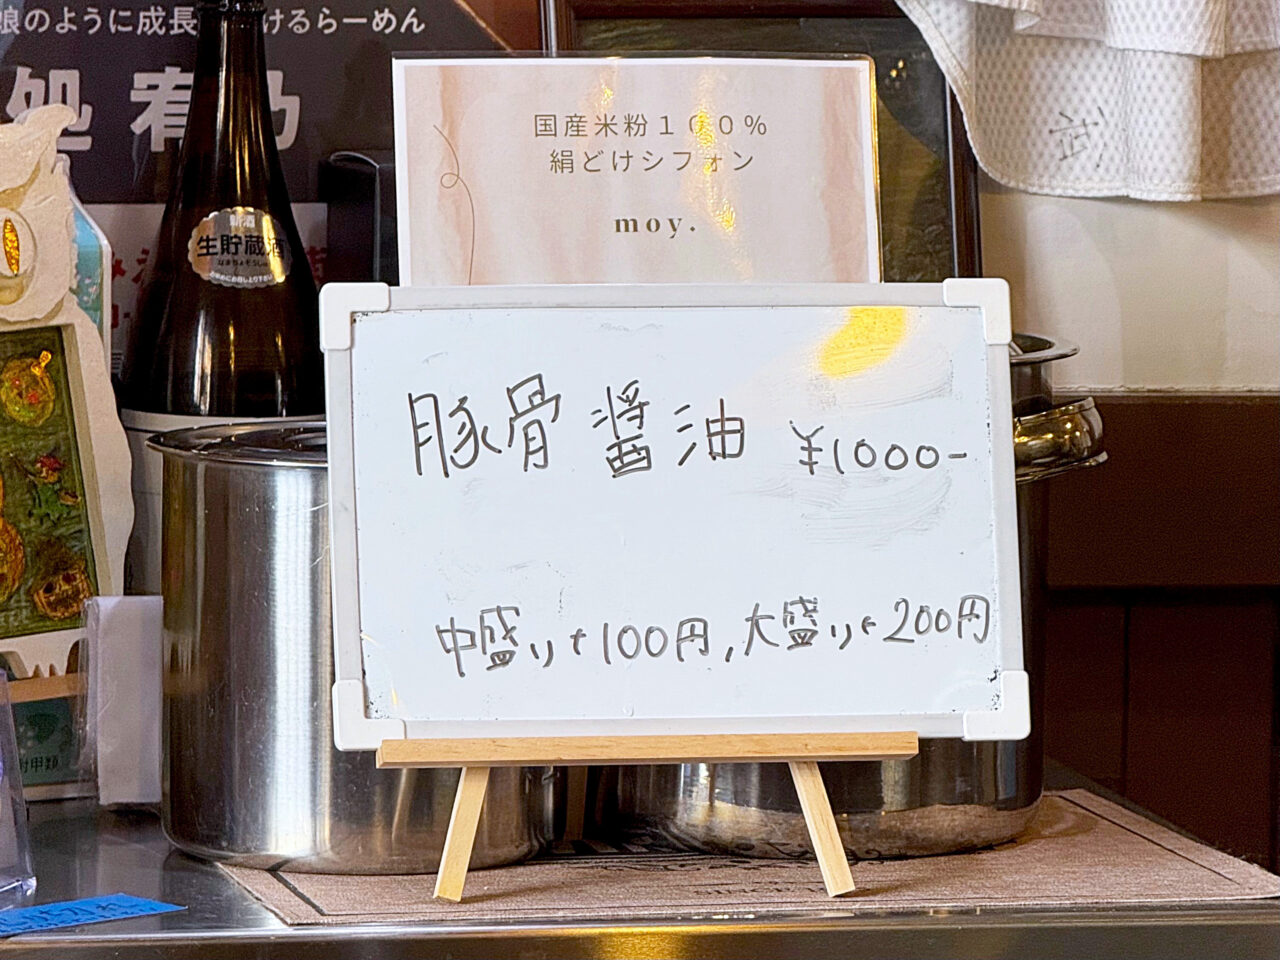 娘のように成長
けるらーめん
処 宥乃
国産米粉100%
絹どけシフォン
moy.
生貯蔵酒
豚骨醤油 ¥1000-
中盛り+100円, 大盛り+200円